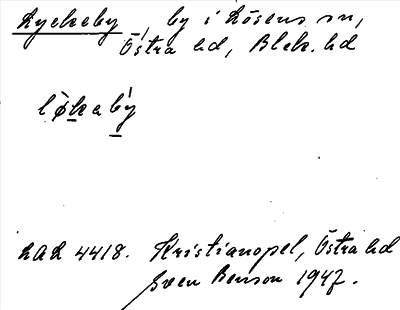 Lyckeby, by i Lösens sn,
Östra hd, Blek. hd
løkaby
LAL 4418. Kristianopel, Östra hd
Sven Benson 1947.